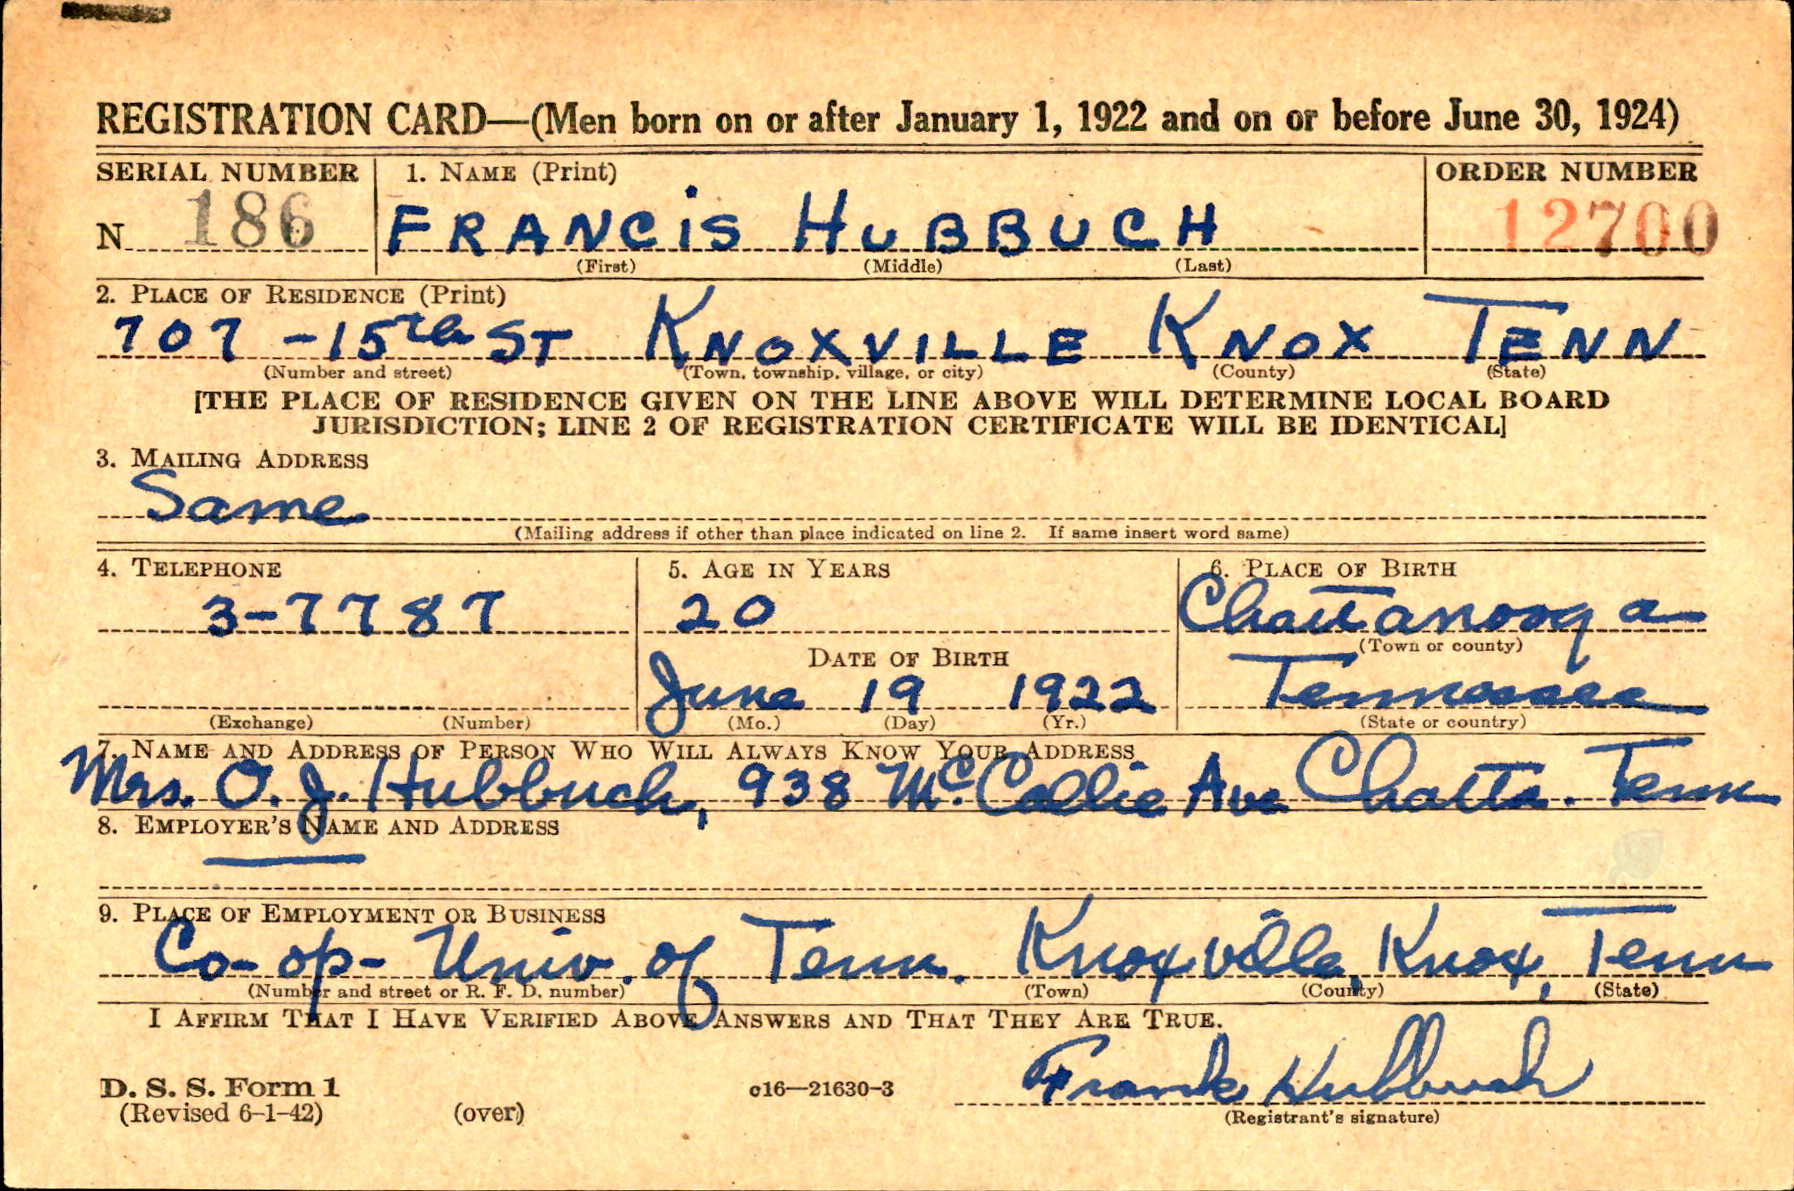 REGISTRATION CARD—(Men born on or after January 1, 1922 and on or before June 30, 1924)
SERIAL NUMBER 1. NAME (Print) ORDER NUMBER
N 186 FRANCIS HUBBUCH 12700
(First) (Middle) (Last)
2. PLACE OF RESIDENCE (Print)
707 - 15th ST KNOXVILLE KNOX TENN
(Number and street) (Town, township, village, or city) (County) (State)
[THE PLACE OF RESIDENCE GIVEN ON THE LINE ABOVE WILL DETERMINE LOCAL BOARD
JURISDICTION; LINE 2 OF REGISTRATION CERTIFICATE WILL BE IDENTICAL]
3. MAILING ADDRESS
Same
(Mailing address if other than place indicated on line 2. If same insert word same)
4. TELEPHONE 5. AGE IN YEARS 6. PLACE OF BIRTH
3-7787 20 Chattanooga
(Town or county)
DATE OF BIRTH
June 19 1922 Tennessee
(Exchange) (Number) (Mo.) (Day) (Yr.) (State or country)
7. NAME AND ADDRESS OF PERSON WHO WILL ALWAYS KNOW YOUR ADDRESS
Mrs. O. J. Hubbuch, 938 McCallie Ave Chatta. Tenn
8. EMPLOYER'S NAME AND ADDRESS
9. PLACE OF EMPLOYMENT OR BUSINESS
Co-op- Univ. of Tenn. Knoxville, Knox, Tenn
(Number and street or R. F. D. number) (Town) (County) (State)
I AFFIRM THAT I HAVE VERIFIED ABOVE ANSWERS AND THAT THEY ARE TRUE.
Frank Hubbuch
D. S. S. Form 1 c16—21630-3
(Revised 6-1-42) (over) (Registrant's signature)